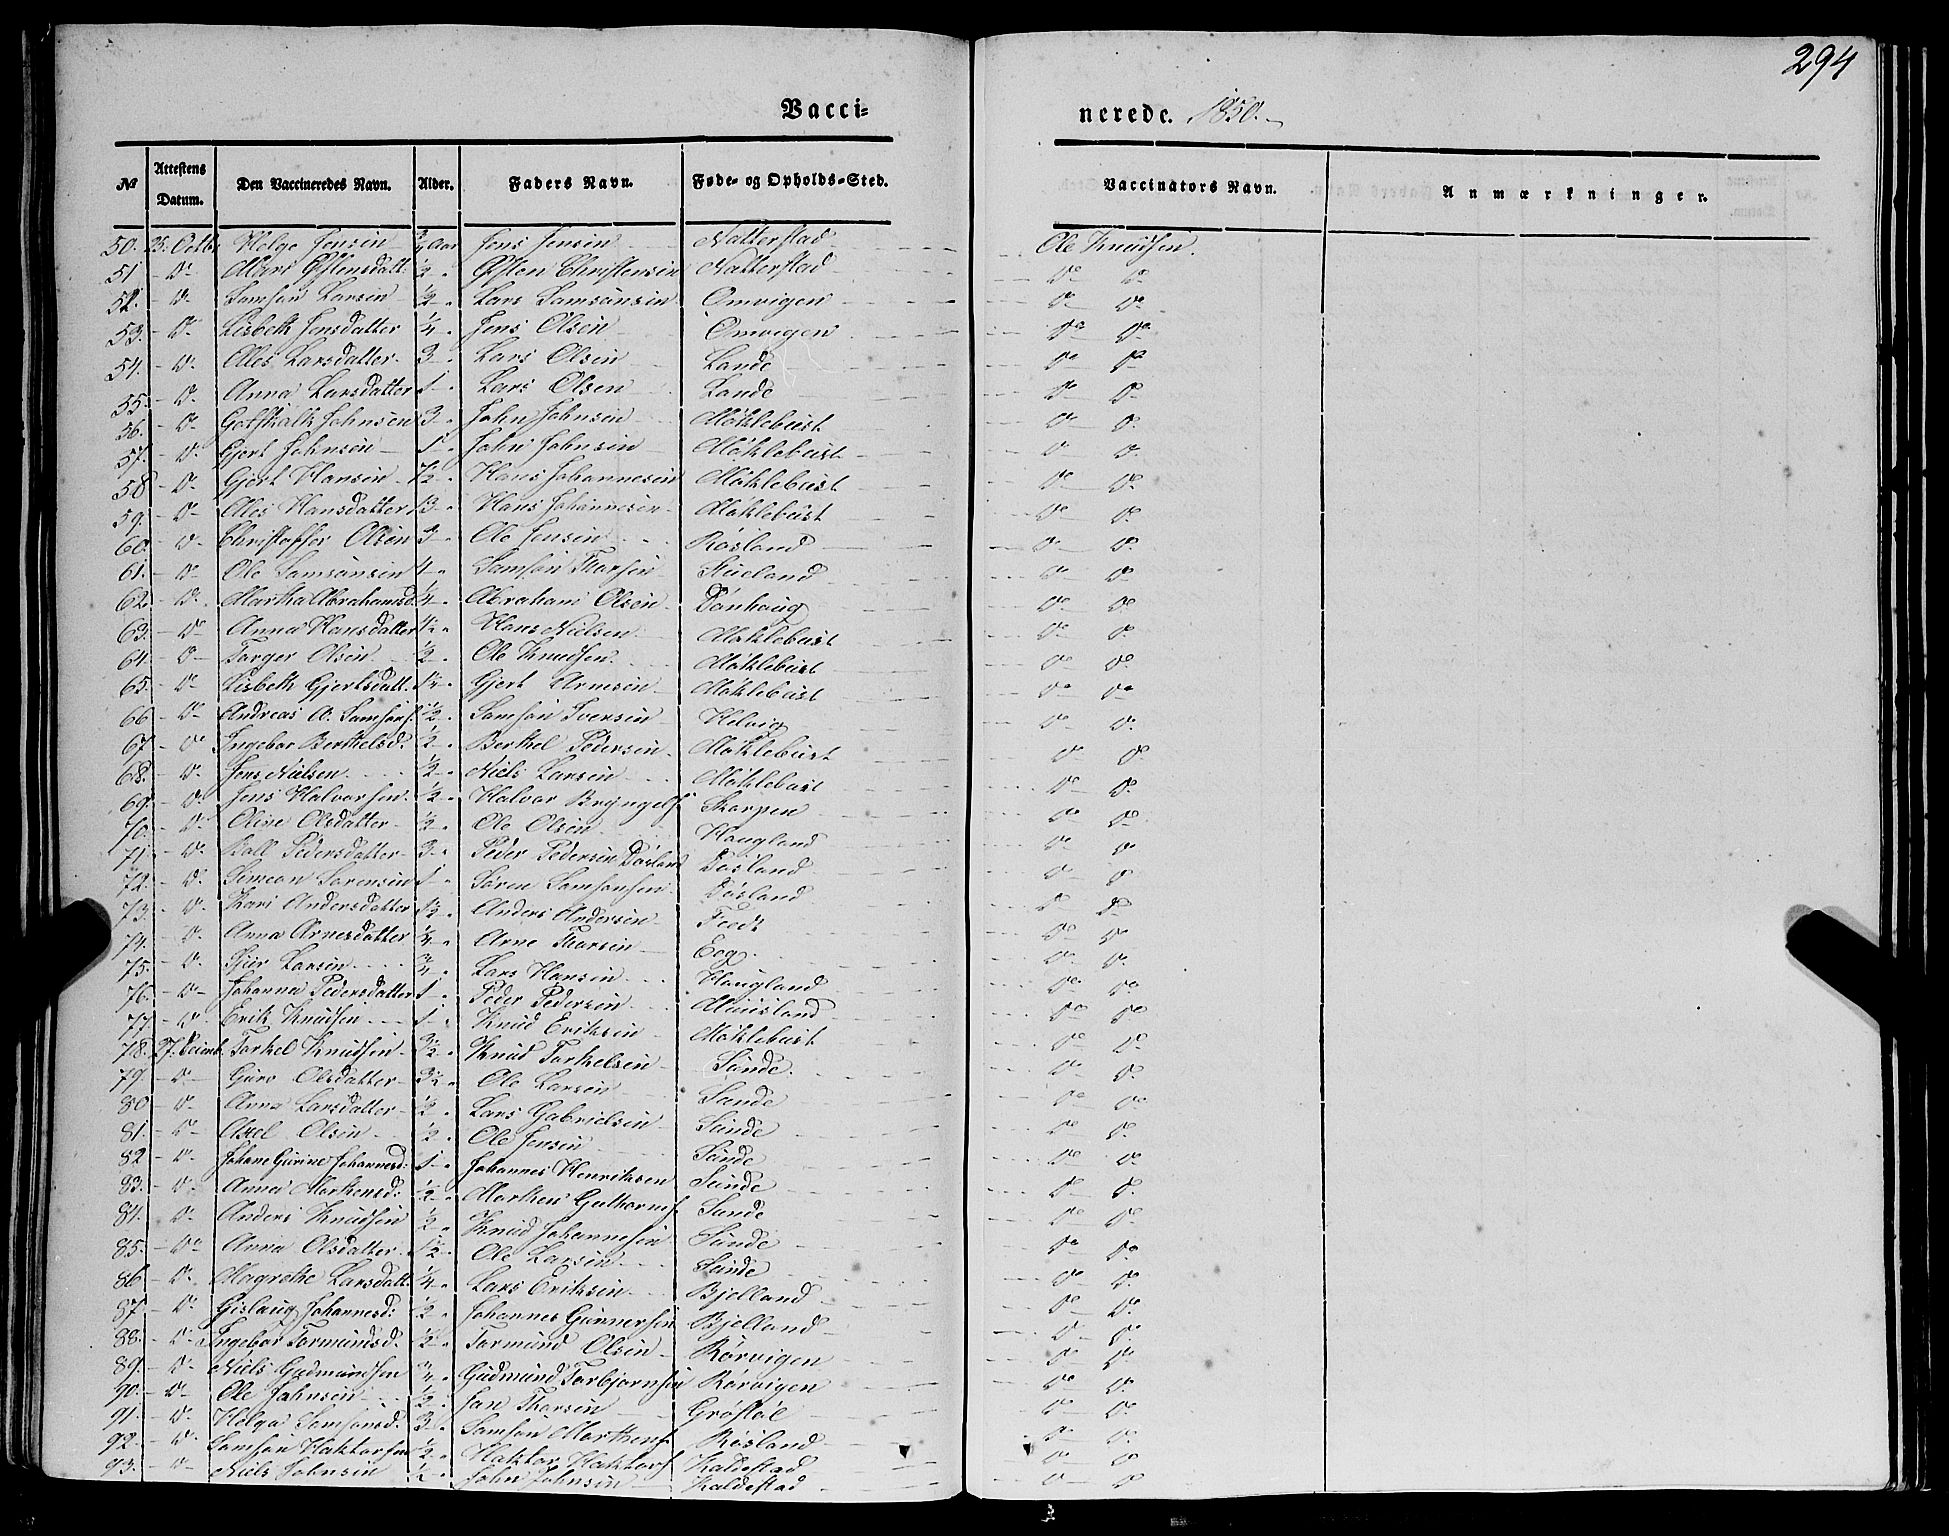 294
Vacci= nerede. 1850.
No Attestens Datum. Den Vaccineredes Navn. Alder. Faders Navn. Føde- og Opholds-Sted. Vaccinators Navn. Anmærkninger.
50. 25. Octbr Helge Jensen ¾ Aar Jens Jensen Natterstad Ole Knudsen.
51 - Do Mari Østensdatt. ½ " Østen Christensen Natterstad Do Do
52. - Do Samson Larsen ½ " Lars Samsonsen Omvigen Do Do
53. - Do Lisbeth Jensdatter ¼ " Jens Olsen Omvigen Do Do
54. - Do Ales Larsdatter. 3 " Lars Olsen Lande Do Do
55. - Do Anna Larsdatter 1 " Lars Olsen Lande Do Do
56. - Do Gotskalk Johnsen 3 " John Johnsen Møklebust Do Do
57. - Do Gjert Johnsen 1 " John Johnsen Møklebust Do Do
58 - Do Gjert Hansen 7½ " Hans Johannesen Møklebust Do Do
59. - Do Ales Hansdatter 13 " Hans Johannesen Møklebust Do Do
60. - Do Christoffer Olsen 3 " Ole Jensen Røsland Do Do
61. - Do Ole Samsonsen 4 " Samson Thorsen Stueland Do Do
62. - Do Martha Abrahamsd. ¼ " Abraham Olsen Dønhaug Do Do
63. - Do Anna Hansdatter " Hans Nielsen Møklebust Do Do
64. - Do Torger Olsen ½ " Ole Knudsen. Møklebust Do Do
65. - Do Lisbeth Gjertsdatt. " Gjert Arnesen Møklebust Do Do
66 - Do Andreas A. Samsons. 1½ " Samson Iversen Helvig Do Do
67 - Do Ingebor Berthelsd. ½ " Berthel Pedersen Møklebust Do Do
68. - Do Jens Nielsen ½ " Niels Larsen Møklebust Do Do
69. - Do Jens Halvorsen. ½ " Halvor Bryngels. Skorpen Do Do
70. - Do Oline Olsdatter ½ " Ole Olsen Haugland Do Do
71. - Do Pedersdatter 3 " Peder Pedersen Døsland Døsland Do Do
72. - Do Simeon Sørensen 1 " Søren Samsonsen Døsland Do Do
73. - Do Kari Andersdatter 1½ " Anders Andersen Feedt Do Do
74. - Do Anna Arnesdatter ¼ " Arne Thorsen Eeg. Do Do
75. - Do Larsen ¾ " Lars Hansen Haugland Do Do
76. - Do Johanna Pedersdatter 1 " Peder Pedersen Do Do
77. - Do Erik Knudsen 1 " Knud Eriksen Møklebust Do Do
78. 27. Torkel Knudsen 3½ " Knud Torkelsen Sunde. Do Do
79. - Do Guro Olsdatter 3½ " Ole Larsen Sunde Do Do
80 - Do Anna Larsdatter ½ " Lars Gabrielsen Sunde Do Do
81. - Do Axel Olsen ½ " Ole Jensen Sunde Do Do
82 - Do Johane Gurine Johannesd: 1 " Johannes Henriksen Sunde Do Do
83. - Do Anna Mortensd: ½ " Morten Guttorms. Sunde Do Do
84. - Do Anders Knudsen ½ " Knud Johannesen Sunde Do Do
85. - Do Anna Olsdatter 1½ " Ole Larsen Sunde Do Do
86. - Do Magrethe Larsdatt. ¼ " Lars Eriksen Bjelland Do Do
87. - Do Gislaug Johannesd: ½ " Johannes Gunnersen Bjelland Do Do
88. - Do Ingebor Tormundsd. ½ " Tormund Olsen Rørvigen Do Do
89. - Do Niels Gudmundsen ¾ " Gudmund Torbjørnsen Rørvigen Do Do
90. - Do Ole Johnsen ½ " Jon Thorsen Grøstøl Do Do
91. - Do Helga Samsonsd. 3 " Samson Mortens. Røsland Do Do
92. - Do Samson Haktorsen ½ " Haktor Haktors. Kaldestad Do Do
93. - Do Niels Johnsen ½ " John Johnsen Kaldestad Do Do